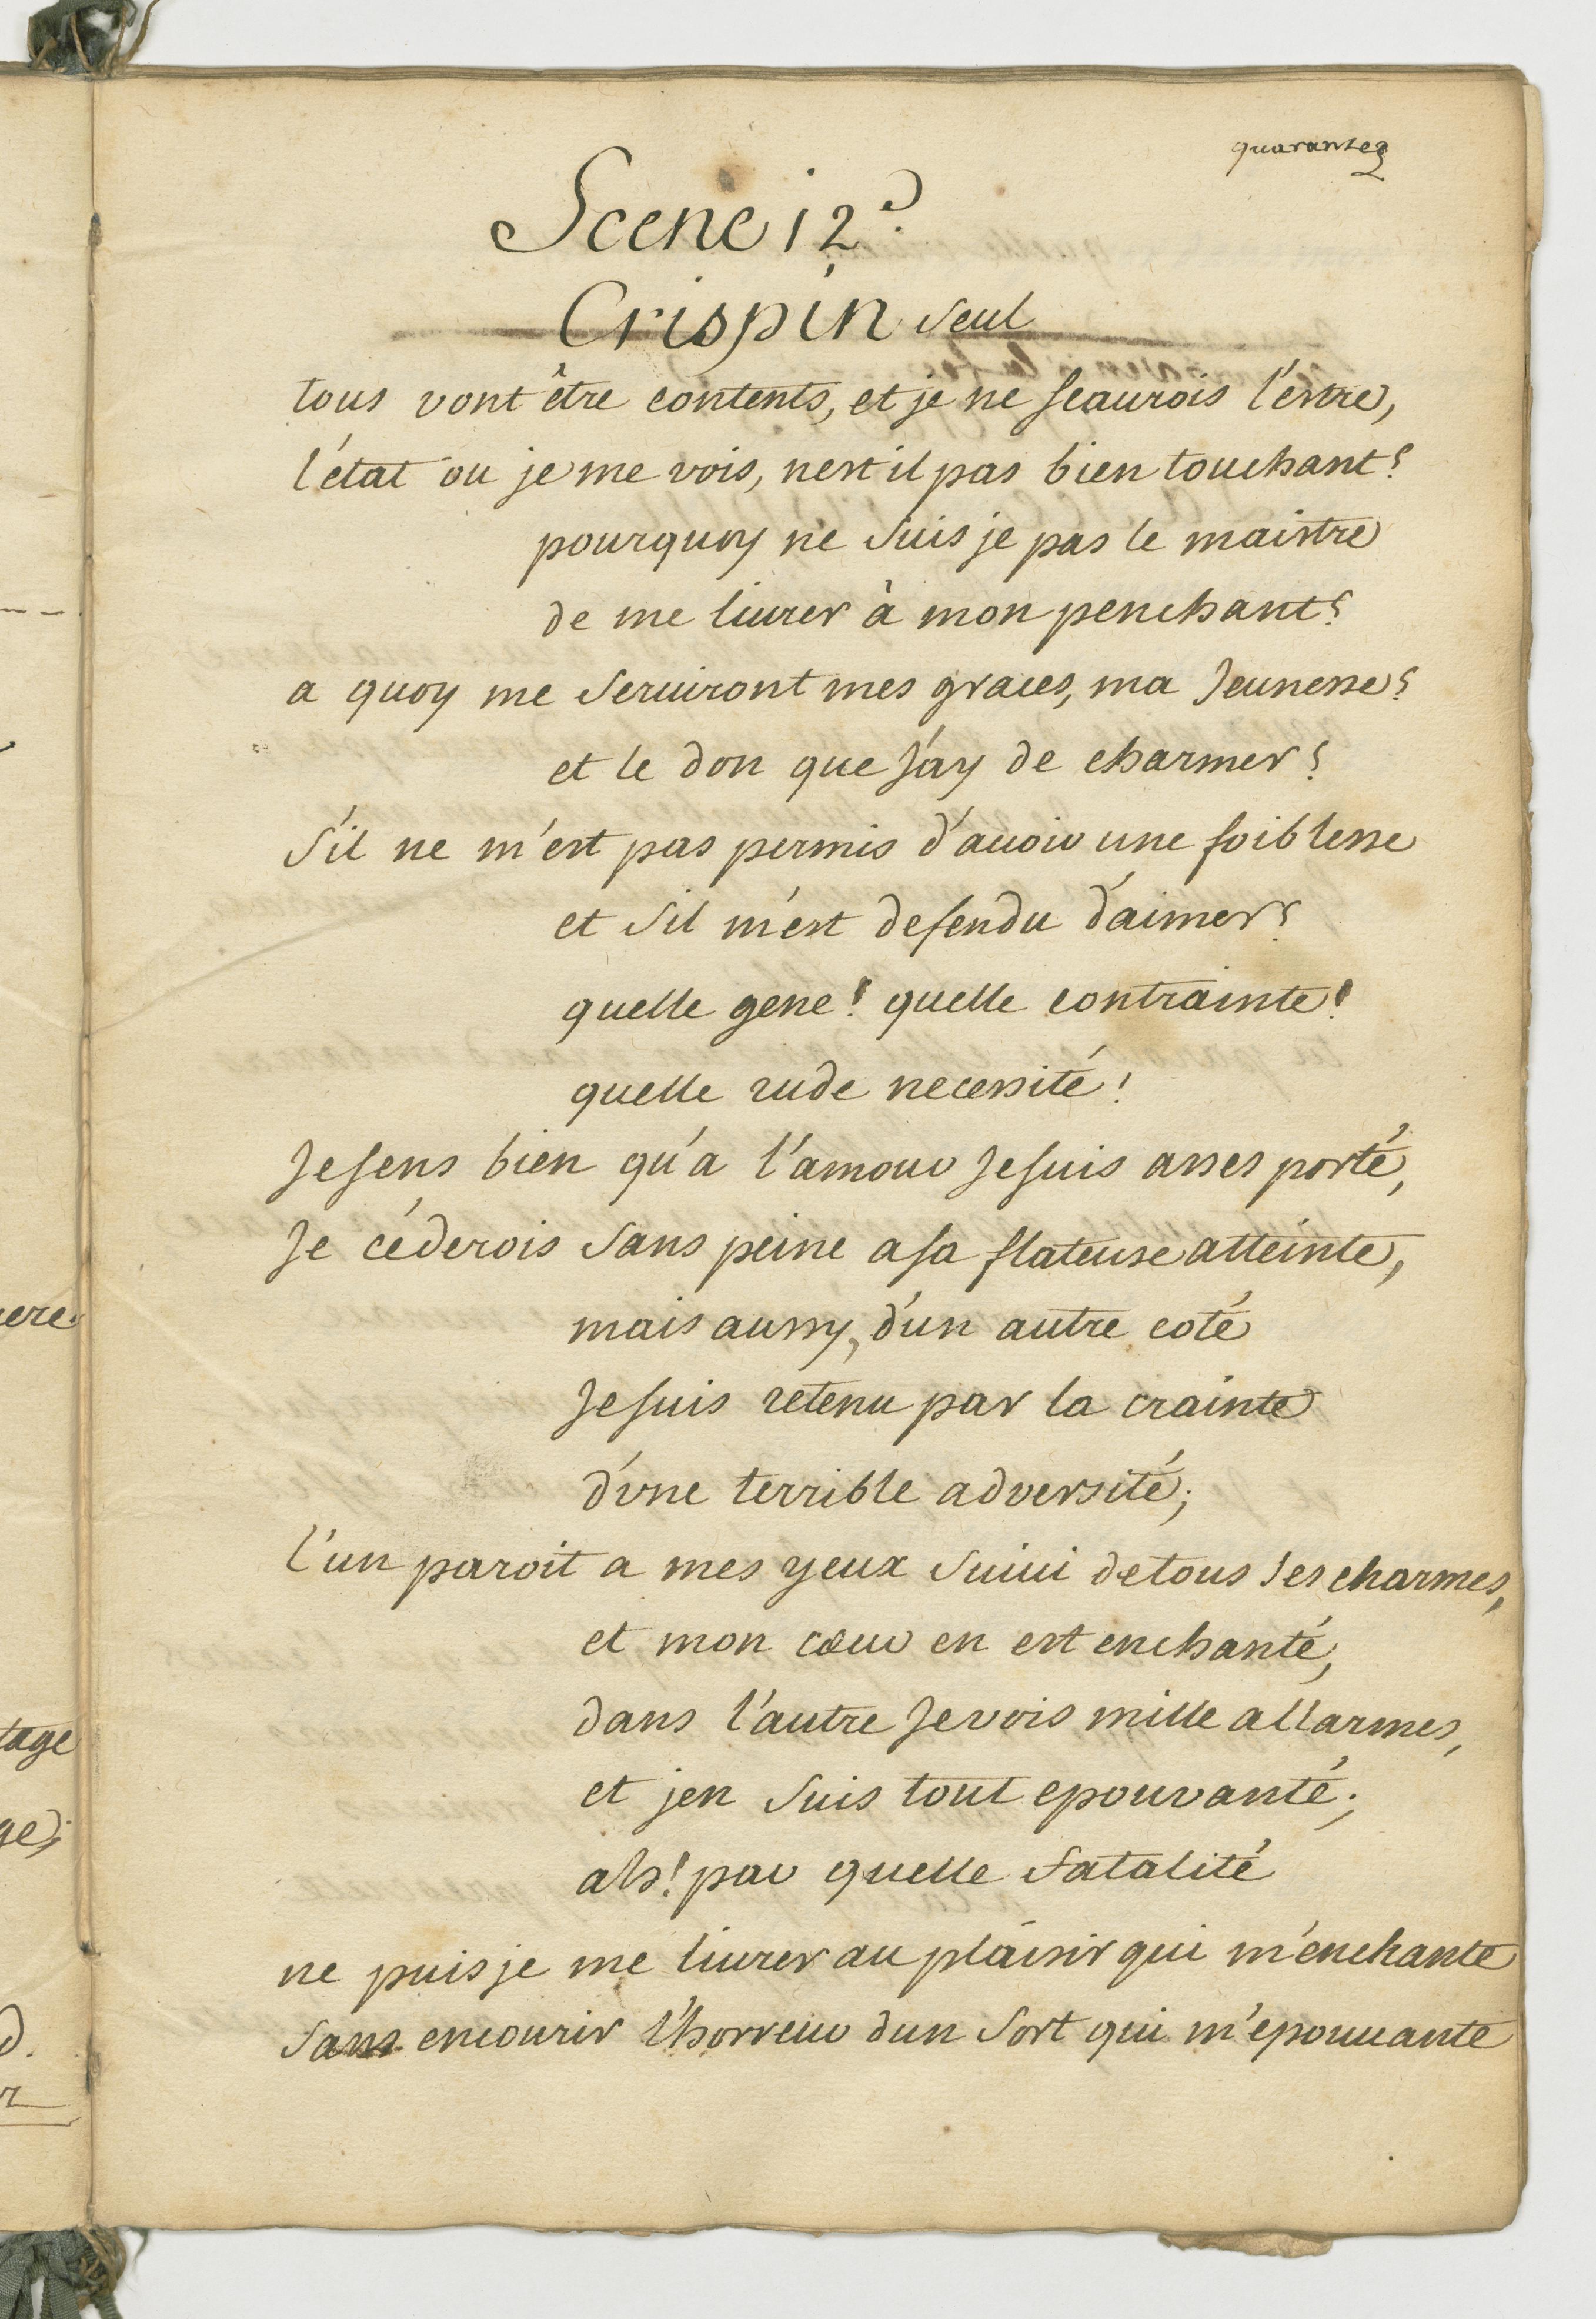 quarante
Scene 12e.
Crispin seul
tous vont être contents, et je ne scaurois l'estre,
l'état ou je me vois, nest il pas bien touchant?
pourquoy ne suis je pas le maistre
de me liurer à mon penchant?
a quoy me seruiront mes graces, ma Jeunesse?
et le don que J'ay de charmer?
s'il ne m'est pas permis d'auoir une foiblesse
et s'il m'est defendu d'aimer?
quelle gene! quelle contrainte!
quelle rude necessité!
Je sens bien qu'a l'amour Je suis asses porté,
Je céderois sans peine a sa flateuse atteinte,
mais aussy, d'un autre coté
Je suis retenu par la crainte
d'vne terrible adversité;
l'un paroit a mes yeux suiui de tous ses charmes,
et mon cœur en est enchanté,
dans l'autre Je vois mille allarmes,
et jen suis tout epouvanté;
ah! par quelle fatalité
ne puis je me liurer au plaisir qui m'enchante
sans encourir l'horreur dun sort qui m'epouuante
ere.
tage
ge;